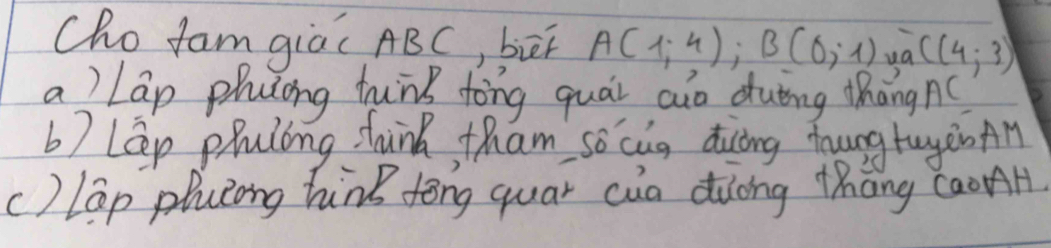 Cho tam giác ABC, biết A(1;4); B(0;1) và C(4;3)
a) Lập phương trình tổng quát của đường thẳng AC
b) Lập phương trình tham số của đường trung tuyến AM
c) lập phương trình tổng quát của đường thẳng cao AH.